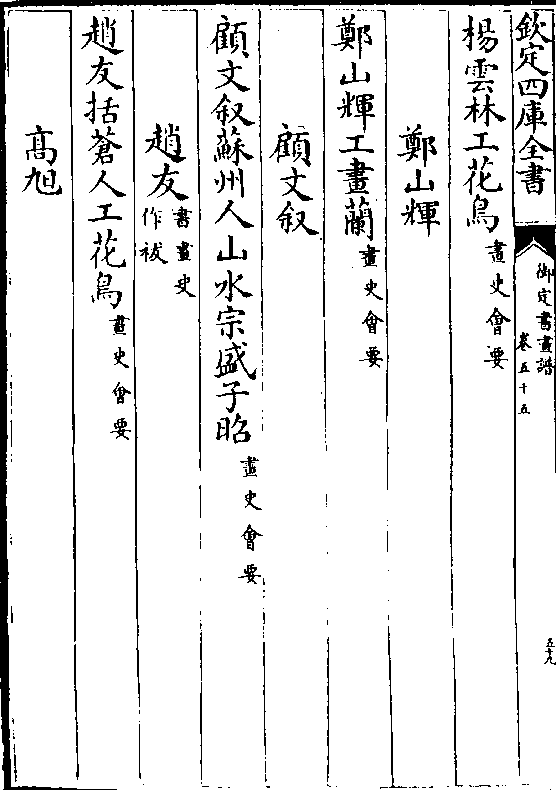 欽定四庫全書
御定書畫譜
卷五十五
五十九
楊雲林工花鳥畫史會要
鄭山輝
鄭山輝工畫蘭畫史會要
顧文叙
顧文叙蘇州人山水宗盛子昭畫史會要
趙友書畫史作袚
趙友括蒼人工花鳥畫史會要
高旭